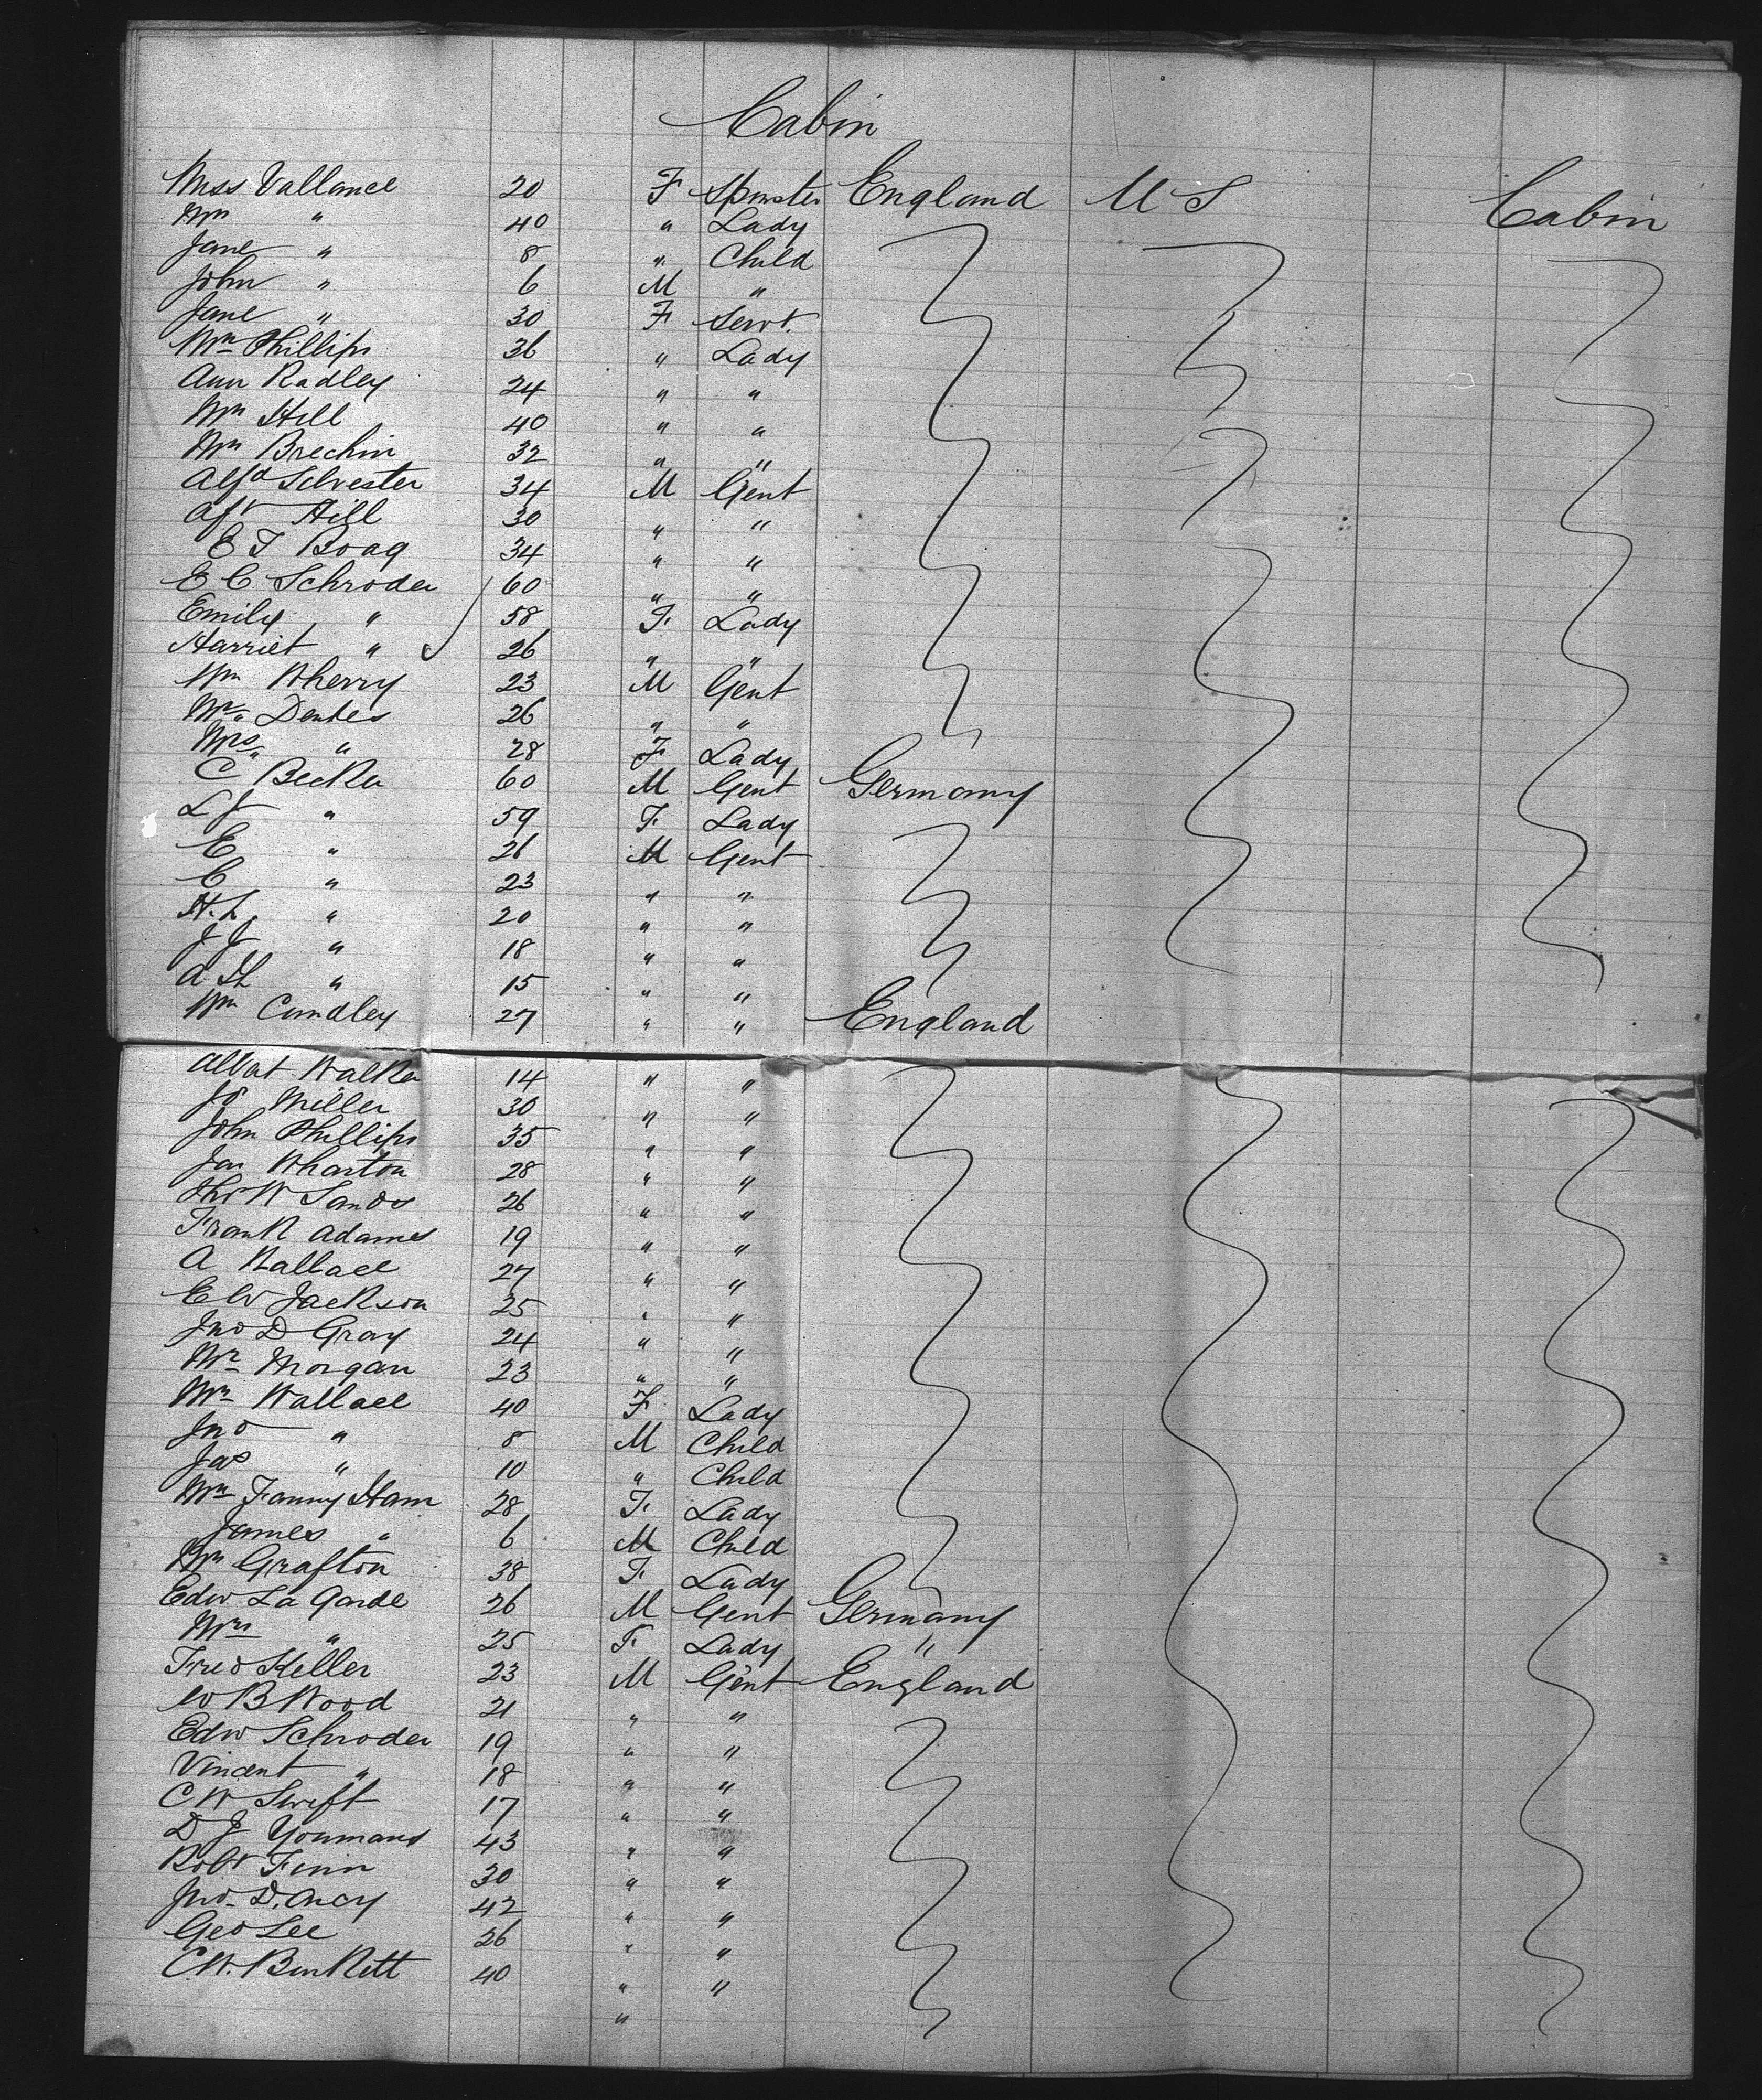 Cabin
Miss Vallance 20 F Spinster England U S Cabin
Mrs " 40 " Lady
Jane " 8 " Child
John " 6 M "
Jane " 30 F Servt.
Mrs Phillips 36 " Lady
Ann Radley 24 " "
Mrs Hill 40 " "
Mrs Brechin 32 " "
Alfd Silvester 34 M Gent
Hill 30 " "
E T Boag 34 " "
E C Schroder 60 " "
Emily " 58 F. Lady
Harriet " 26 " "
Wm Wherry 23 M Gent
Mr. 26 " "
Mrs " 28 F Lady
C Becker 60 M Gent Germany
L J " 59 F. Lady
E " 26 M Gent
C " 23 " "
H. L. " 20 " "
J J " 18 " "
A H " 15 " "
Wm Cundley 27 " " England
Albert Walker 14 " "
Miller 30 " "
John Phillips 35 " "
Jas Wharton 28 " "
Thos W Sands 26 " "
Frank Adames 19 " "
A Wallace 27 " "
E W Jackson 25 " "
Jno D Gray 24 " "
Mr Morgan 23 " "
Mrs Wallace 40 F Lady
Jno " 8 M Child
Jas " 10 " Child
Mrs Fanny Ham 28 F. Lady
James " 6 M Child
Mrs Grafton 38 F. Lady
Edw La Garde 26 M Gent Germany
Mrs " 25 F. Lady "
Fred Keller 23 M Gent England
W B Wood 21 " "
Edw Schroder 19 " "
Vincent " 18 " "
C W Swift 17 " "
D J Youmans 43 " "
Robt Finn 30 " "
Jno. D. Arcy 42 " "
Geo Lee 26 " "
C. W. 40 " "
"